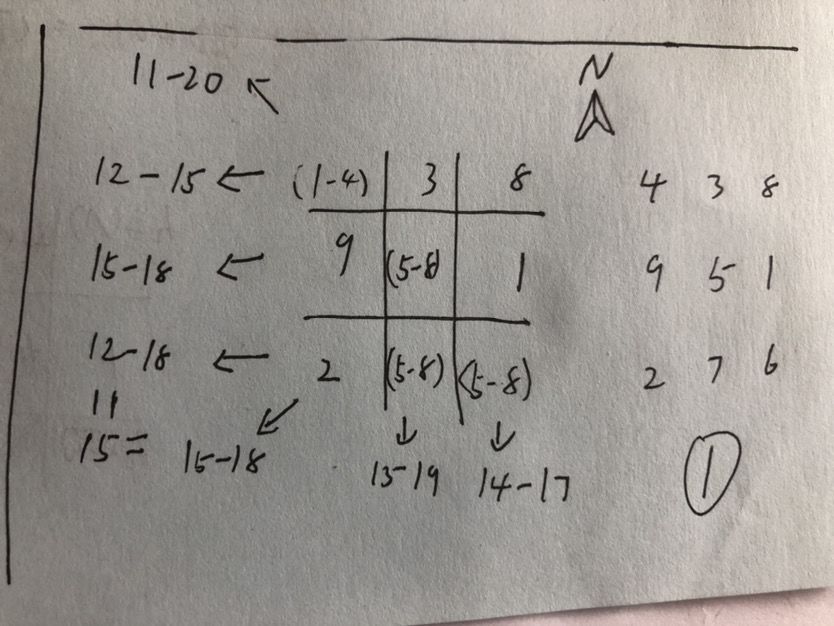 11-20 N
12-15 (1-4) 3 8 4 3 8
15-18 9 (5-8) 1 9 5 1
12-18 2 (5-8) (5-8) 2 7 6
11
15= 15-18 13-19 14-17 1